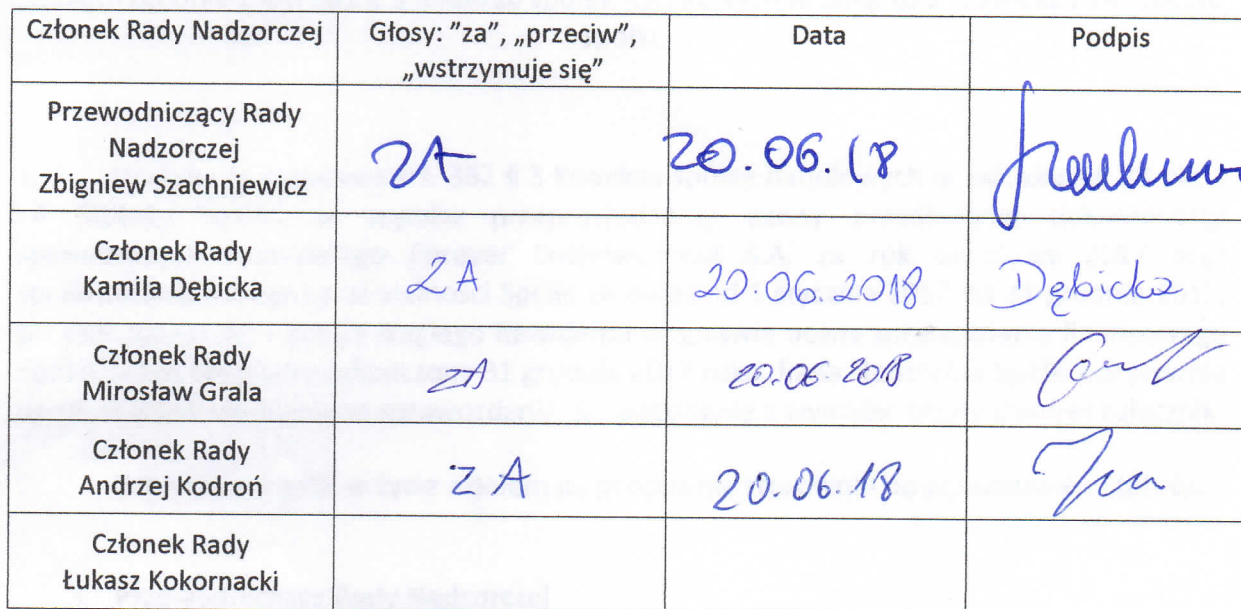 Członek Rady Nadzorczej Głosy: "za" , „przeciw”, Data Podpis
„wstrzymuje się”
Przewodniczący Rady
Nadzorczej
Zbigniew Szachniewicz ZA 20.06.18
Członek Rady
Kamila Dębicka ZA 20.06.2018 Dębicka
Członek Rady
Mirosław Grala ZA 20.06.2018
Członek Rady
Andrzej Kodroń ZA 20.06.18
Członek Rady
Łukasz Kokornacki